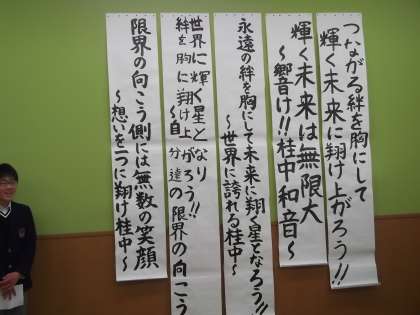 つながる絆を胸にして
輝く未来に翔け上がろう!!
輝く未来は無限大
～響け!!桂中和音～
永遠の絆を胸にして未来に翔く星となろう!!
～世界に誇れる桂中～
世界に輝く星となり
絆を胸に翔け上がろう!!
～自分達の限界の向こう
限界の向こう側には無数の笑顔
～想いを一つに翔け桂中～